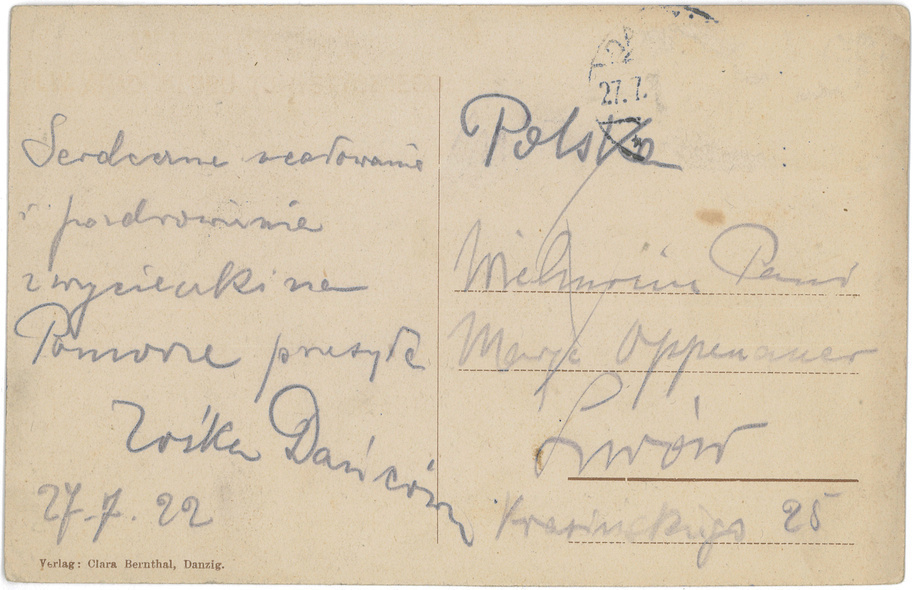 Serdeczne ucałowanie
i pozdrowienie
z wycieczki na
Pomorze przesyła
Zośka
27.7.22
Verlag: Clara Bernthal, Danzig.
27.7.
Polska
Wielmożna Pani
Marja Oppenauer
Lwów
Krasickiego 25